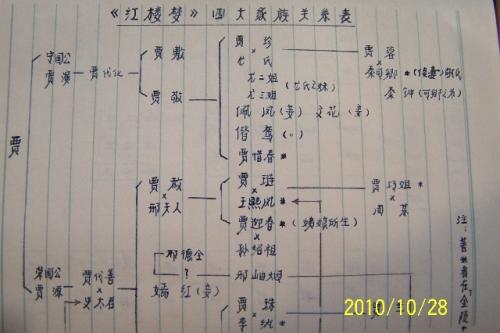 《红楼梦》四大家族关系表
贾
宁国公
贾演
贾代化
贾敷
贾敬
贾珍
尤氏
尤二姐
尤三姐(尤氏之妹)
佩凤(妾) 文花(妾)
偕鸳(〃)
贾惜春*
贾蓉
秦可卿*
秦钟
荣国公
贾源
贾代善
史太君
贾赦
邢夫人
邢德全
?
嫣红(妾)
贾琏
王熙凤*
贾迎春*
孙绍祖
邢岫烟
贾巧姐*
周某
贾珠
李纨*
注:
2010/10/28